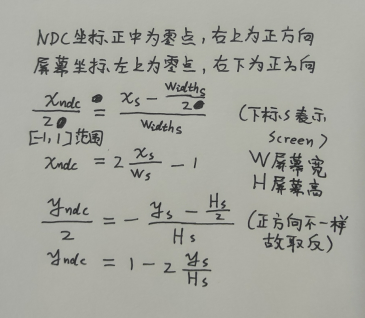 NDC坐标.正中为零点,右上为正方向
屏幕坐标.左上为零点,右下为正方向
x_ndc / 2 = (x_s - Width_s / 2) / Width_s (下标s表示
[-1,1]范围 Screen)
x_ndc = 2 x_s / W_s - 1 W屏幕宽
H屏幕高
y_ndc / 2 = - (y_s - H_s / 2) / H_s (正方向不一样
故取反)
y_ndc = 1 - 2 y_s / H_s